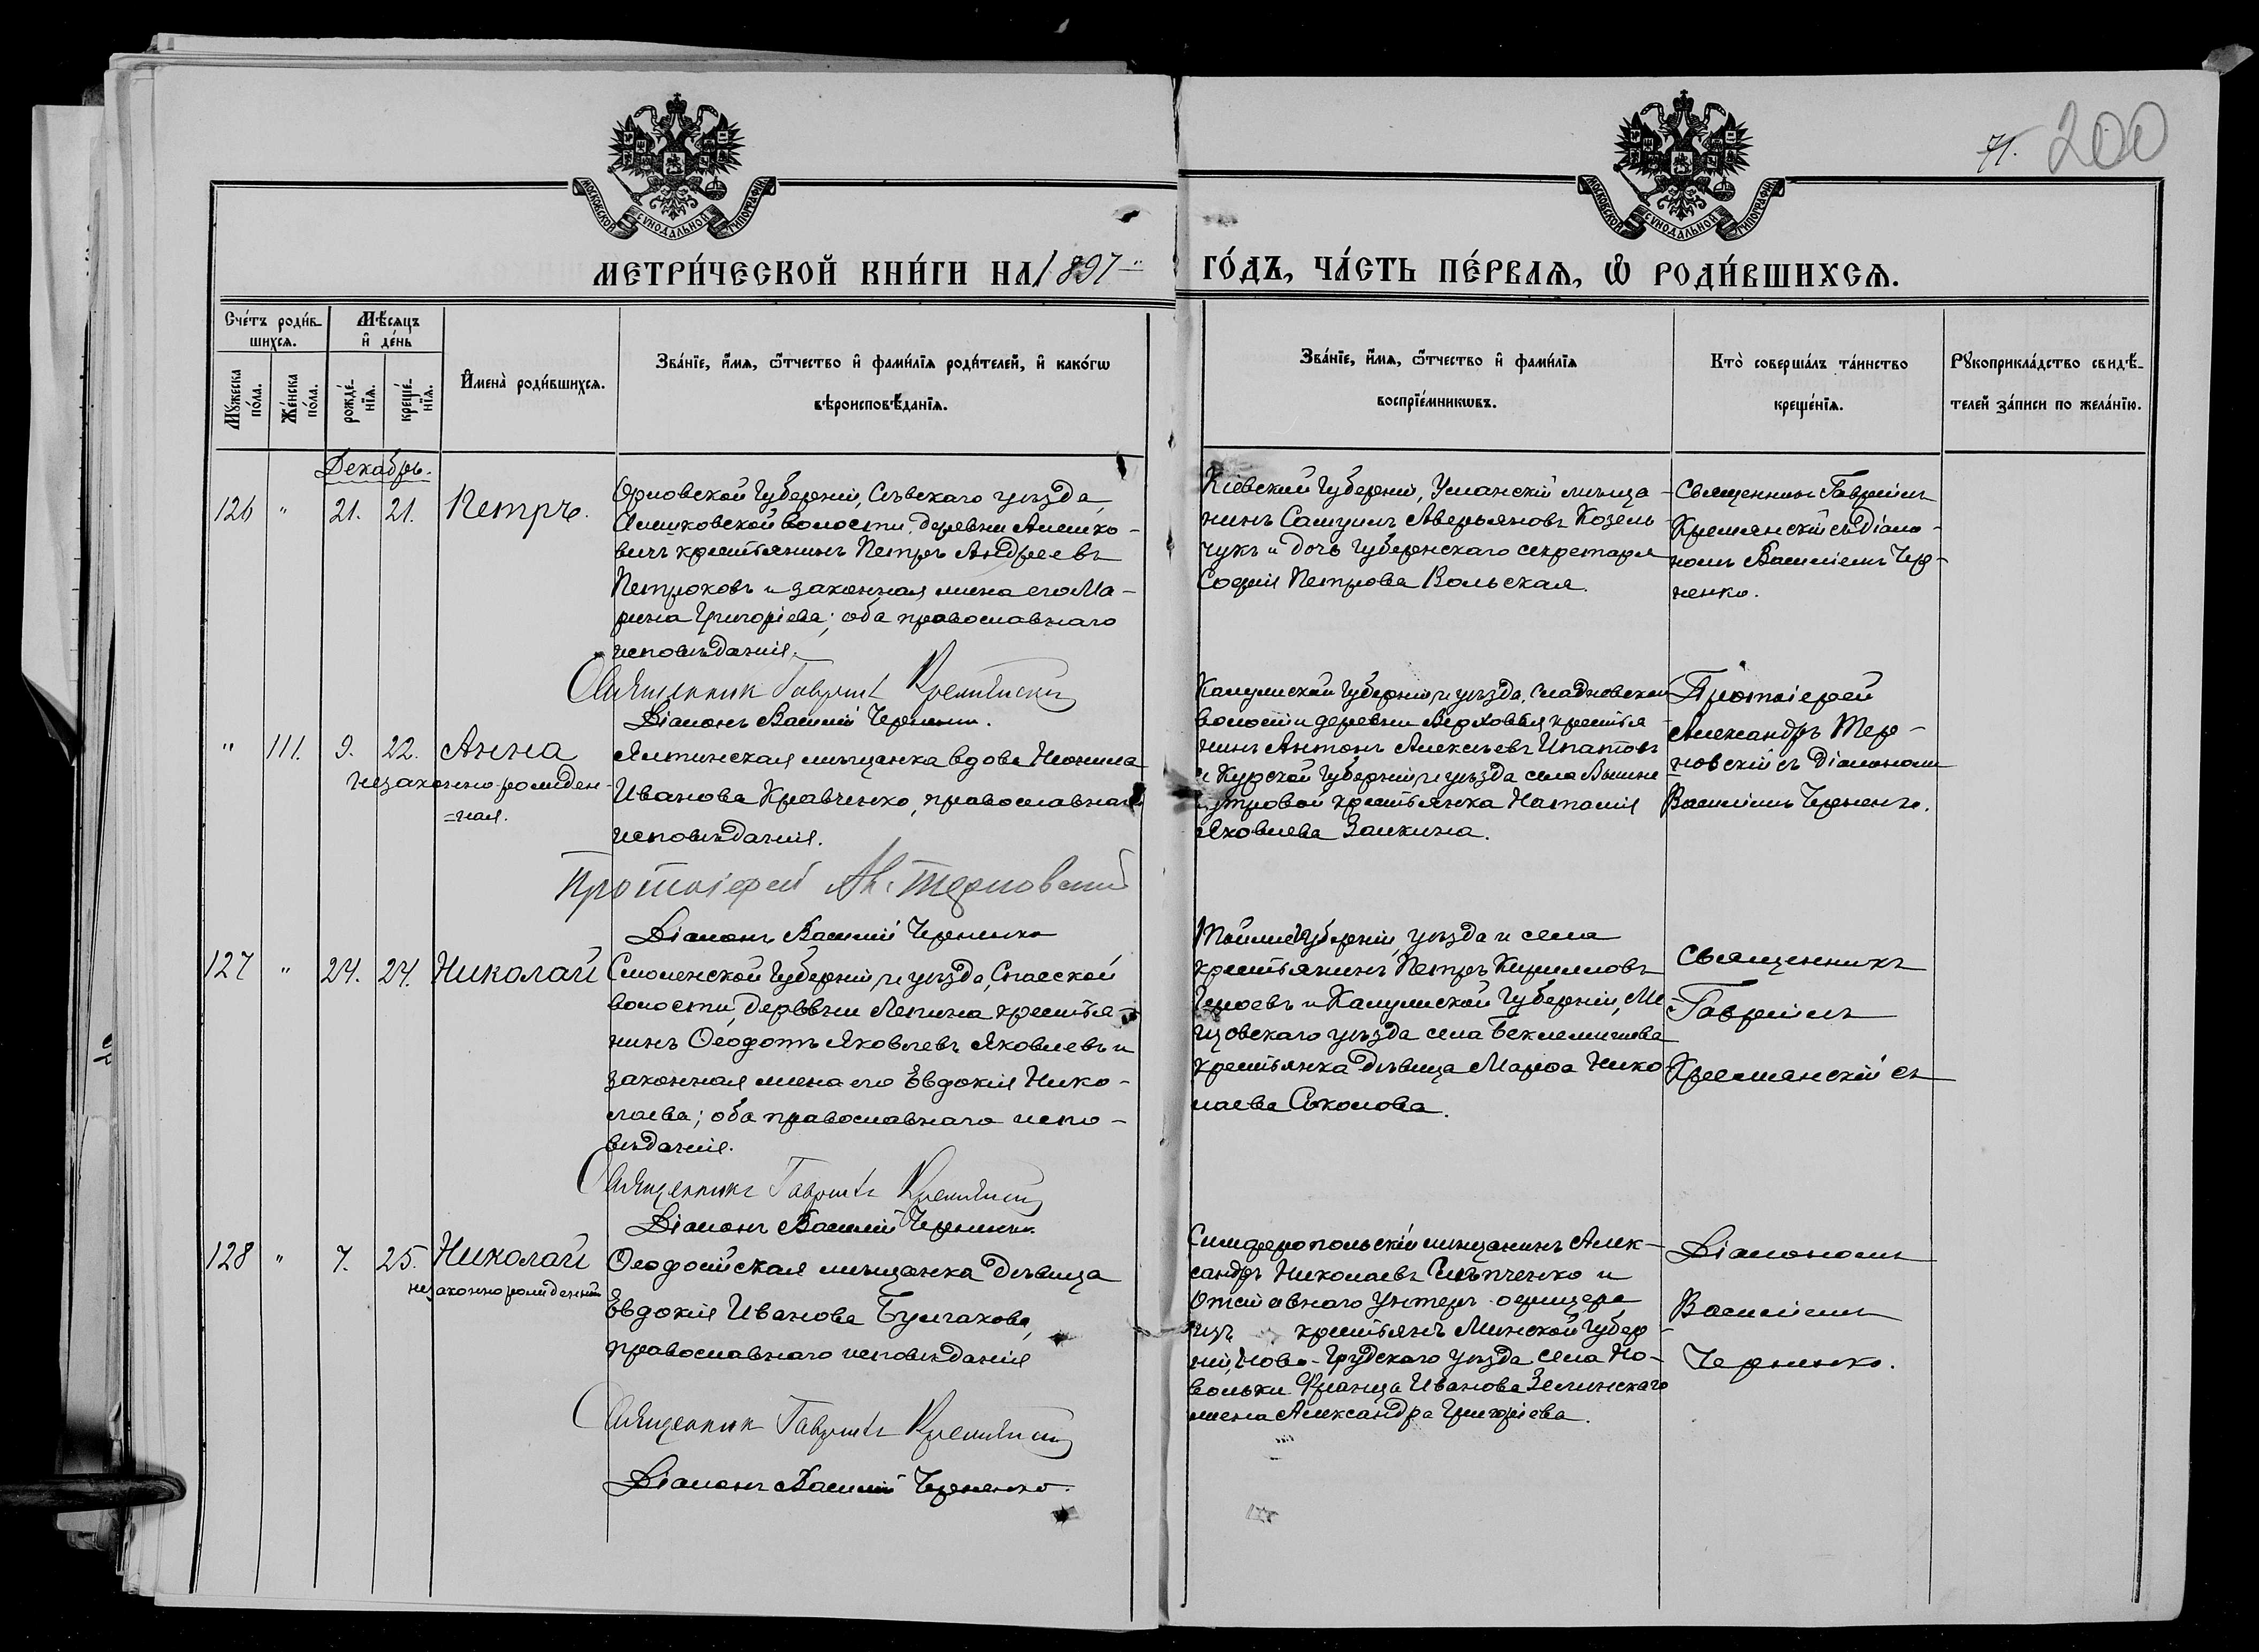 71. 200
МОСКОВСКОЙ СѴНОДАЛЬНОЙ ТИПОГРАФІИ
МОСКОВСКОЙ СѴНОДАЛЬНОЙ ТИПОГРАФІИ
МЕТРИ́ЧЕСКОЙ КНИ́ГИ НА 1897 ГО́ДЪ, ЧА́СТЬ ПЕ́РВАѦ, Ѡ҆ РОДИ́ВШИХСѦ.
Сче́тъ роди́в-
шихсѧ.
Мꙋ́жеска по́ла.
Же́нска по́ла.
Мѣ́сѧцъ
и҆ де́нь
рожде́-нїѧ.
креще́-нїѧ.
И҆мена̀ роди́вшихсѧ.
Зва́нїе, и҆́мѧ, ѻ҆́тчество и҆ фами́лїѧ роди́телей, и҆ како́гѡ
вѣроисповѣ́данїѧ.
Зва́нїе, и҆́мѧ, ѻ҆́тчество и҆ фами́лїѧ
воспрїе́мникѡвъ.
Кто̀ соверша́лъ та́инство
креще́нїѧ.
Рꙋкоприкла́дство свидѣ́-
телей за́писи по жела́нїю.
Декабрь.
126 " 21. 21. Петръ.
Орловской Губерніи, Сѣвскаго уѣзда,
Алешковской волости, деревни Алешко-
вичъ крестьянинъ Петръ Андреевъ
Петроховъ и законная жена его Ма-
рина Григоріева; оба православнаго
исповѣданія.
Священникъ Гавріилъ Кремянскій
Діаконъ Василій Черненко.
Кіевской Губерніи, Уманскій мѣща-
нинъ Самуилъ Аверьяновъ Козель-
чукъ и дочь Губернскаго секретаря
Софія Петрова Вольская.
Священникъ Гавріилъ
Кремянскій съ Діако-
номъ Василіемъ Чер-
ненко.
" 111. 9. 22. Анна
незаконнорожден-
=ная.
Ялтинская мѣщанка вдова Неонила
Иванова Кравченко, православнаго
исповѣданія.
Протоіерей Ал. Терновскій
Діаконъ Василій Черненко
Калужской Губерніи и уѣзда,
волости деревни Верховья, крестья-
нинъ Антонъ Алексѣевъ Ипатовъ
и Курской Губерніи и уѣзда села
крестьянка Наталія
Яковлева Заикина.
Протоіерей
Александръ Тер-
новскій съ Діакономъ
Василіемъ Черненко.
127 " 24. 24. Николай
Смоленской Губерніи, и уѣзда, Спасской
волости, деревни Лепина крестья-
нинъ Ѳеодотъ Яковлевъ Яковлевъ и
законная жена его Евдокія Нико-
лаева; оба православнаго испо-
вѣданія.
Священникъ Гавріилъ Кремянскій
Діаконъ Василій Черненко.
Той же Губерніи, уѣзда и села
крестьянинъ Петръ Кирилловъ
и Калужской Губерніи, Ме-
щовскаго уѣзда села Беклемишева
крестьянка дѣвица Марѳа Нико-
лаева Соколова.
Священникъ
Гавріилъ
Кремянскій съ
128 " 7. 25. Николай
незаконнорожденный
Ѳеодосійская мѣщанка дѣвица
Евдокія Иванова Булгакова,
православнаго исповѣданія
Священникъ Гавріилъ Кремянскій
Діаконъ Василій Черненко.
Симферопольскій мѣщанинъ Алек-
сандръ Николаевъ и
Отставнаго унтеръ-офицера
изъ крестьянъ Минской Губер-
ніи, Ново-Грудскаго уѣзда села Но-
вольки Франца Иванова Зелинскаго
жена Александра Григоріева.
Діакономъ
Василіемъ
Черненко.